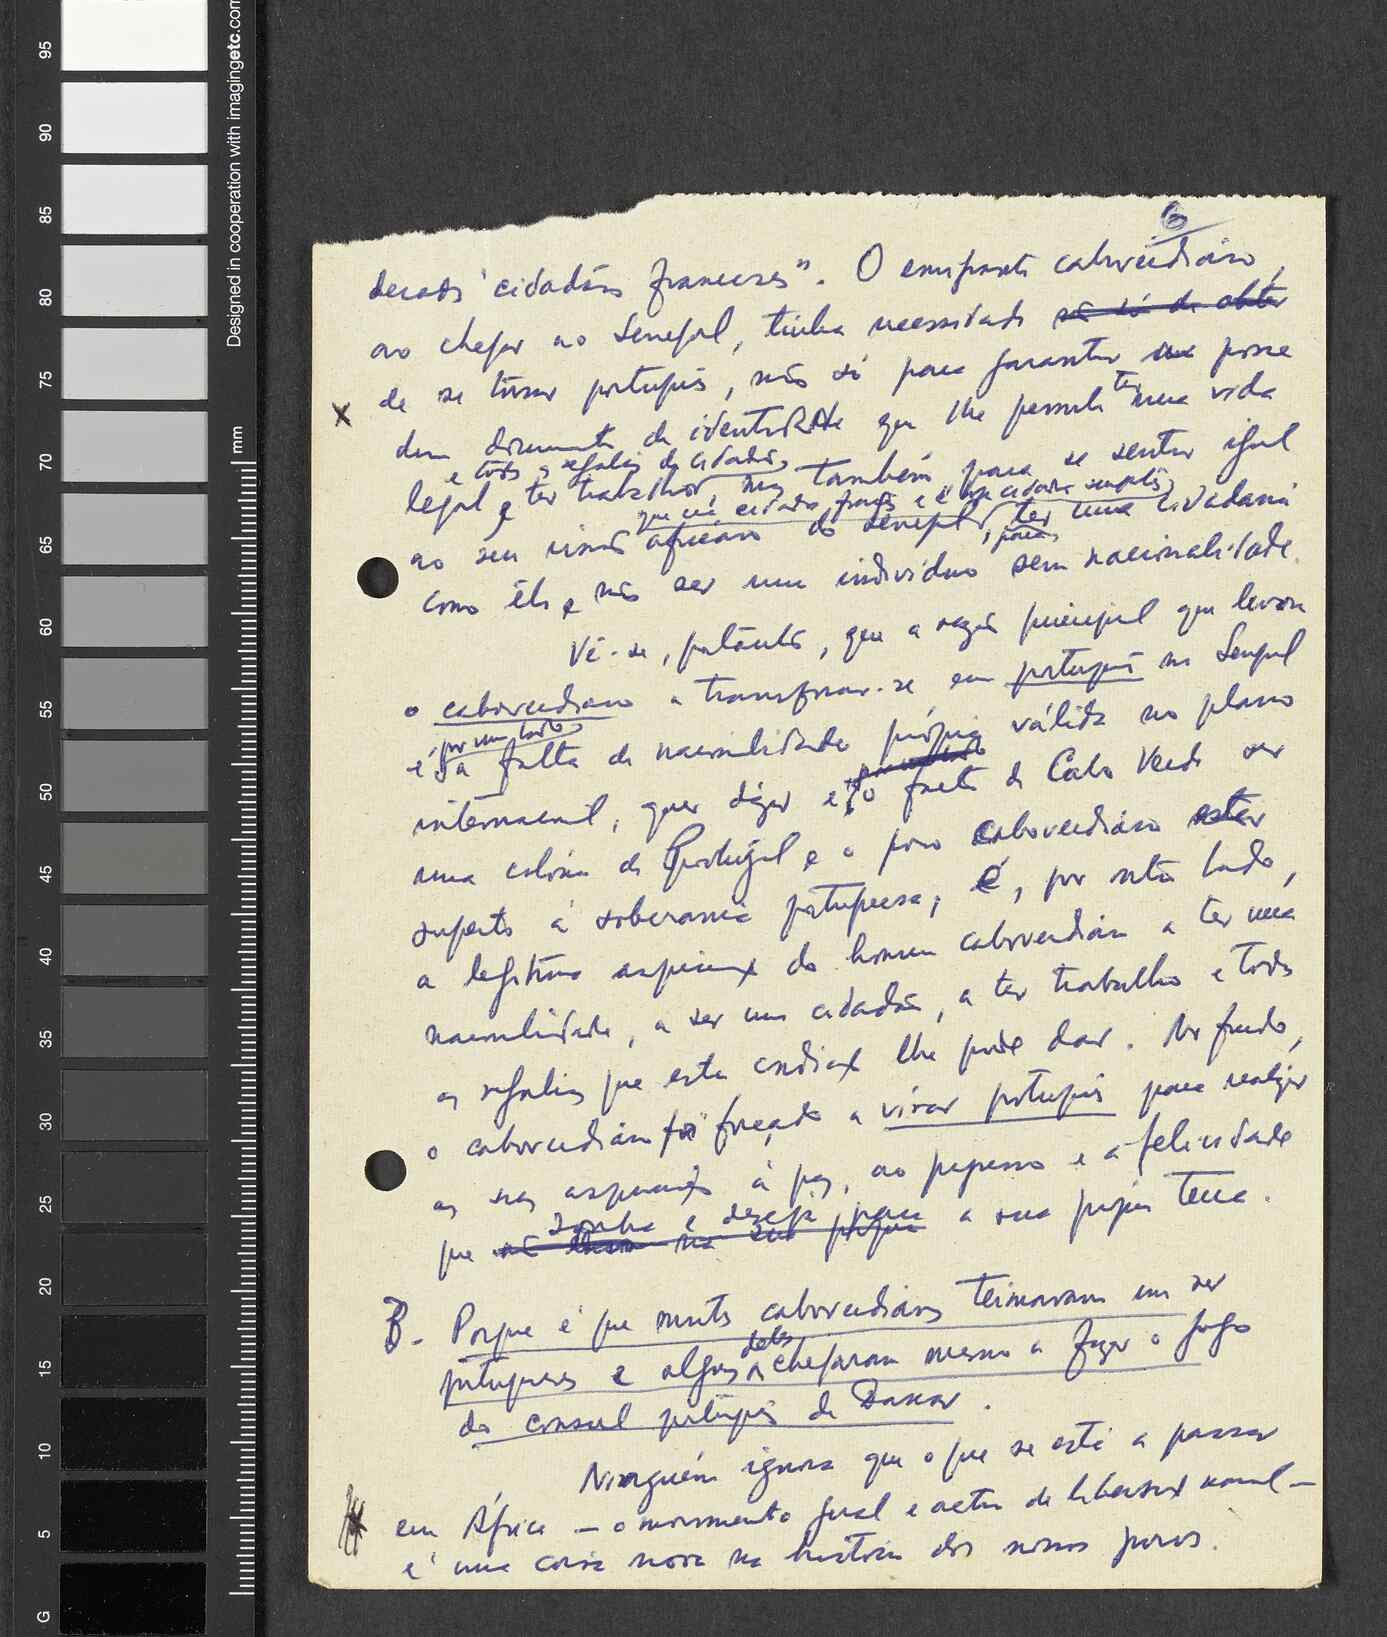 6
derados "cidadãos franceses". O emigrante caboverdiano,
ao chegar ao Senegal, tinha necessidade não só de obter
de se tornar português, não só para garantir sua posse
dum documento de identidade que lhe permita ter uma vida
e todas as regalias de cidadão,
legal e ter trabalho, mas também para se sentir igual
que era cidadão francês e é hoje cidadão senegalês,
ao seu irmão africano do Senegal, para ter uma cidadania
como êle e não ser um indivíduo sem nacionalidade.
Vê-se, portanto, que a razão principal que levou
o caboverdiano a transformar-se em português no Senegal
por um lado
é a falta de nacionalidade própria válida no plano
internacional, quer dizer é o facto de Cabo Verde ser
uma colónia de Portugal e o povo caboverdiano estar
sujeito à soberania portuguesa; É, por outro lado,
a legítima aspiração do homem caboverdiano a ter uma
nacionalidade, a ser um cidadão, a ter trabalho e todas
as regalias que esta condição lhe pode dar. No fundo,
o caboverdiano foi forçado a virar português para realizar
as suas aspirações à paz, ao progresso e à felicidade
sonha e deseja para
que não tem na sua própria a sua própria terra.
B. Porque é que muitos caboverdianos teimavam em ser
deles
portugueses e alguns chegaram mesmo a fazer o jogo
do consul português de Dakar.
Ninguém ignora que o que se está a passar
em África — o movimento geral e activo de libertação nacional —
é uma coisa nova na história dos nossos povos.
95
90
85
80
75
70
65
60
55
50
45
40
35
30
25
20
15
10
5
G
mm
Designed in cooperation with imagingetc.com